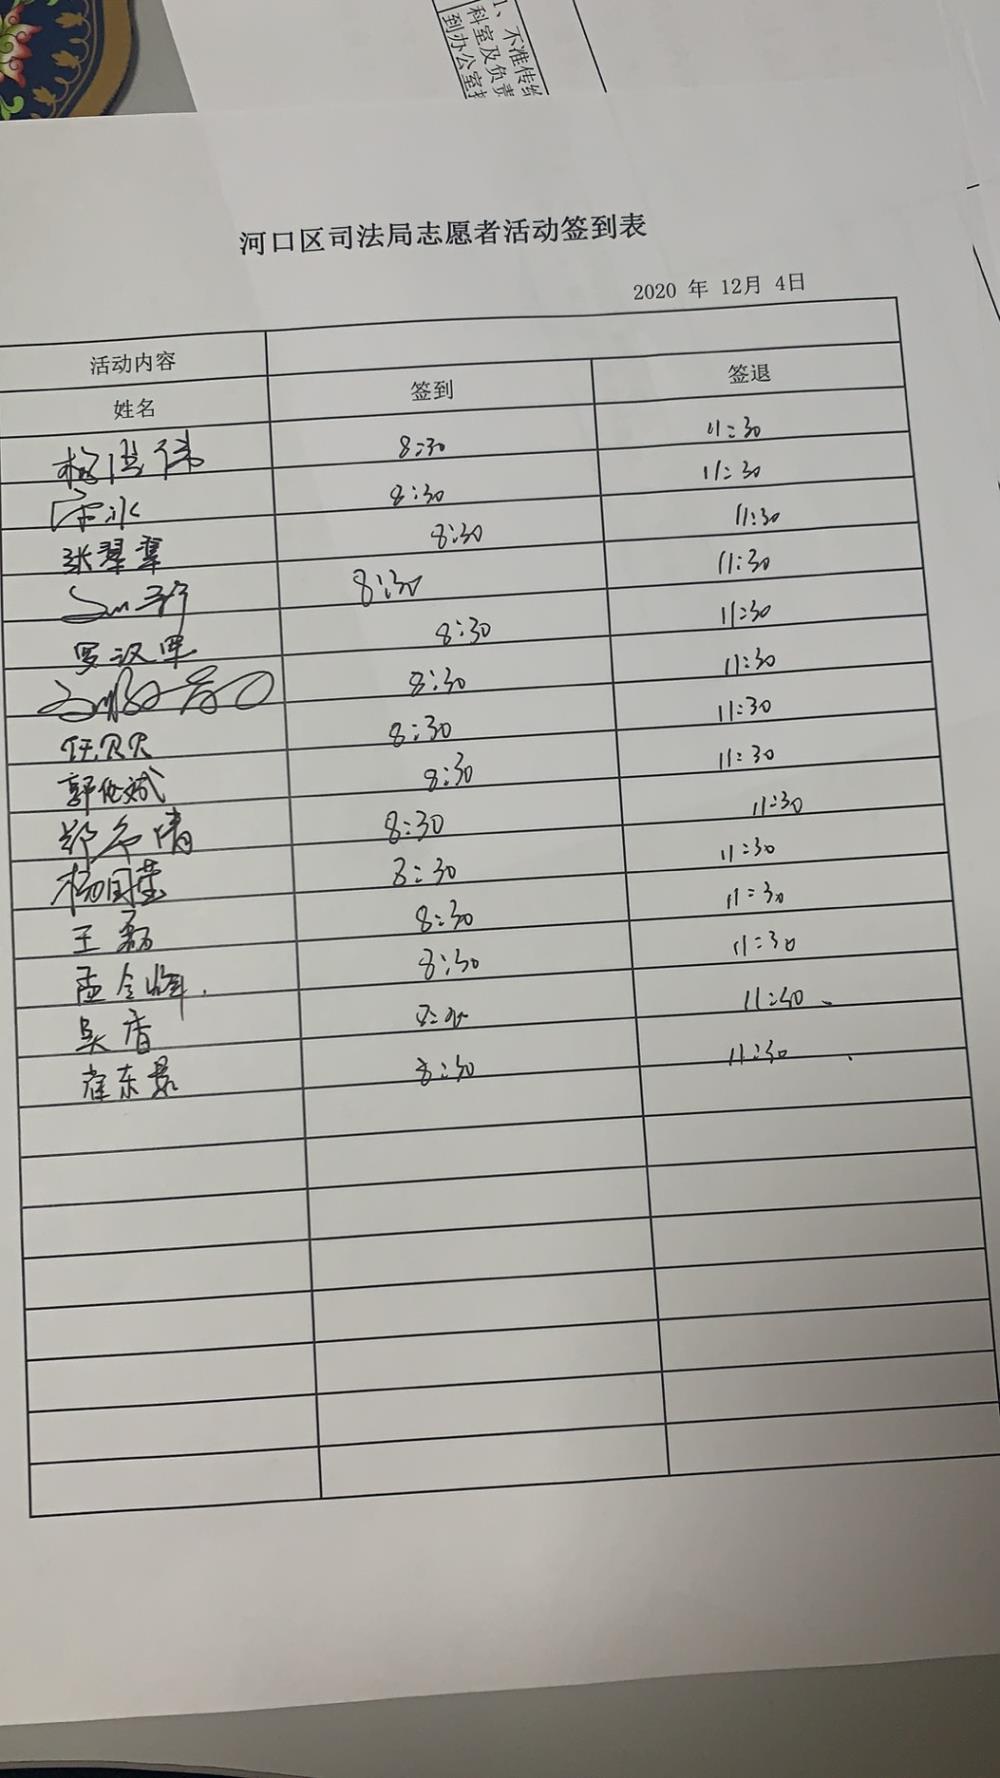 1、不准传
科室及负责
到办公室
河口区司法局志愿者活动签到表
2020 年 12月 4日
活动内容
姓名 签到 签退
8:30 11:30
宋冰 8:30 11:30
张翠翠 8:30 11:30
8:30 11:30
罗汉军 8:30 11:30
8:30 11:30
任贝贝 8:30 11:30
郭伦斌 8:30 11:30
郑 倩 8:30 11:30
杨国莹 8:30 11:30
王磊 8:30 11:30
孟令峰. 8:30 11:30
吴香 8:30 11:30
崔东景 8:30 11:30